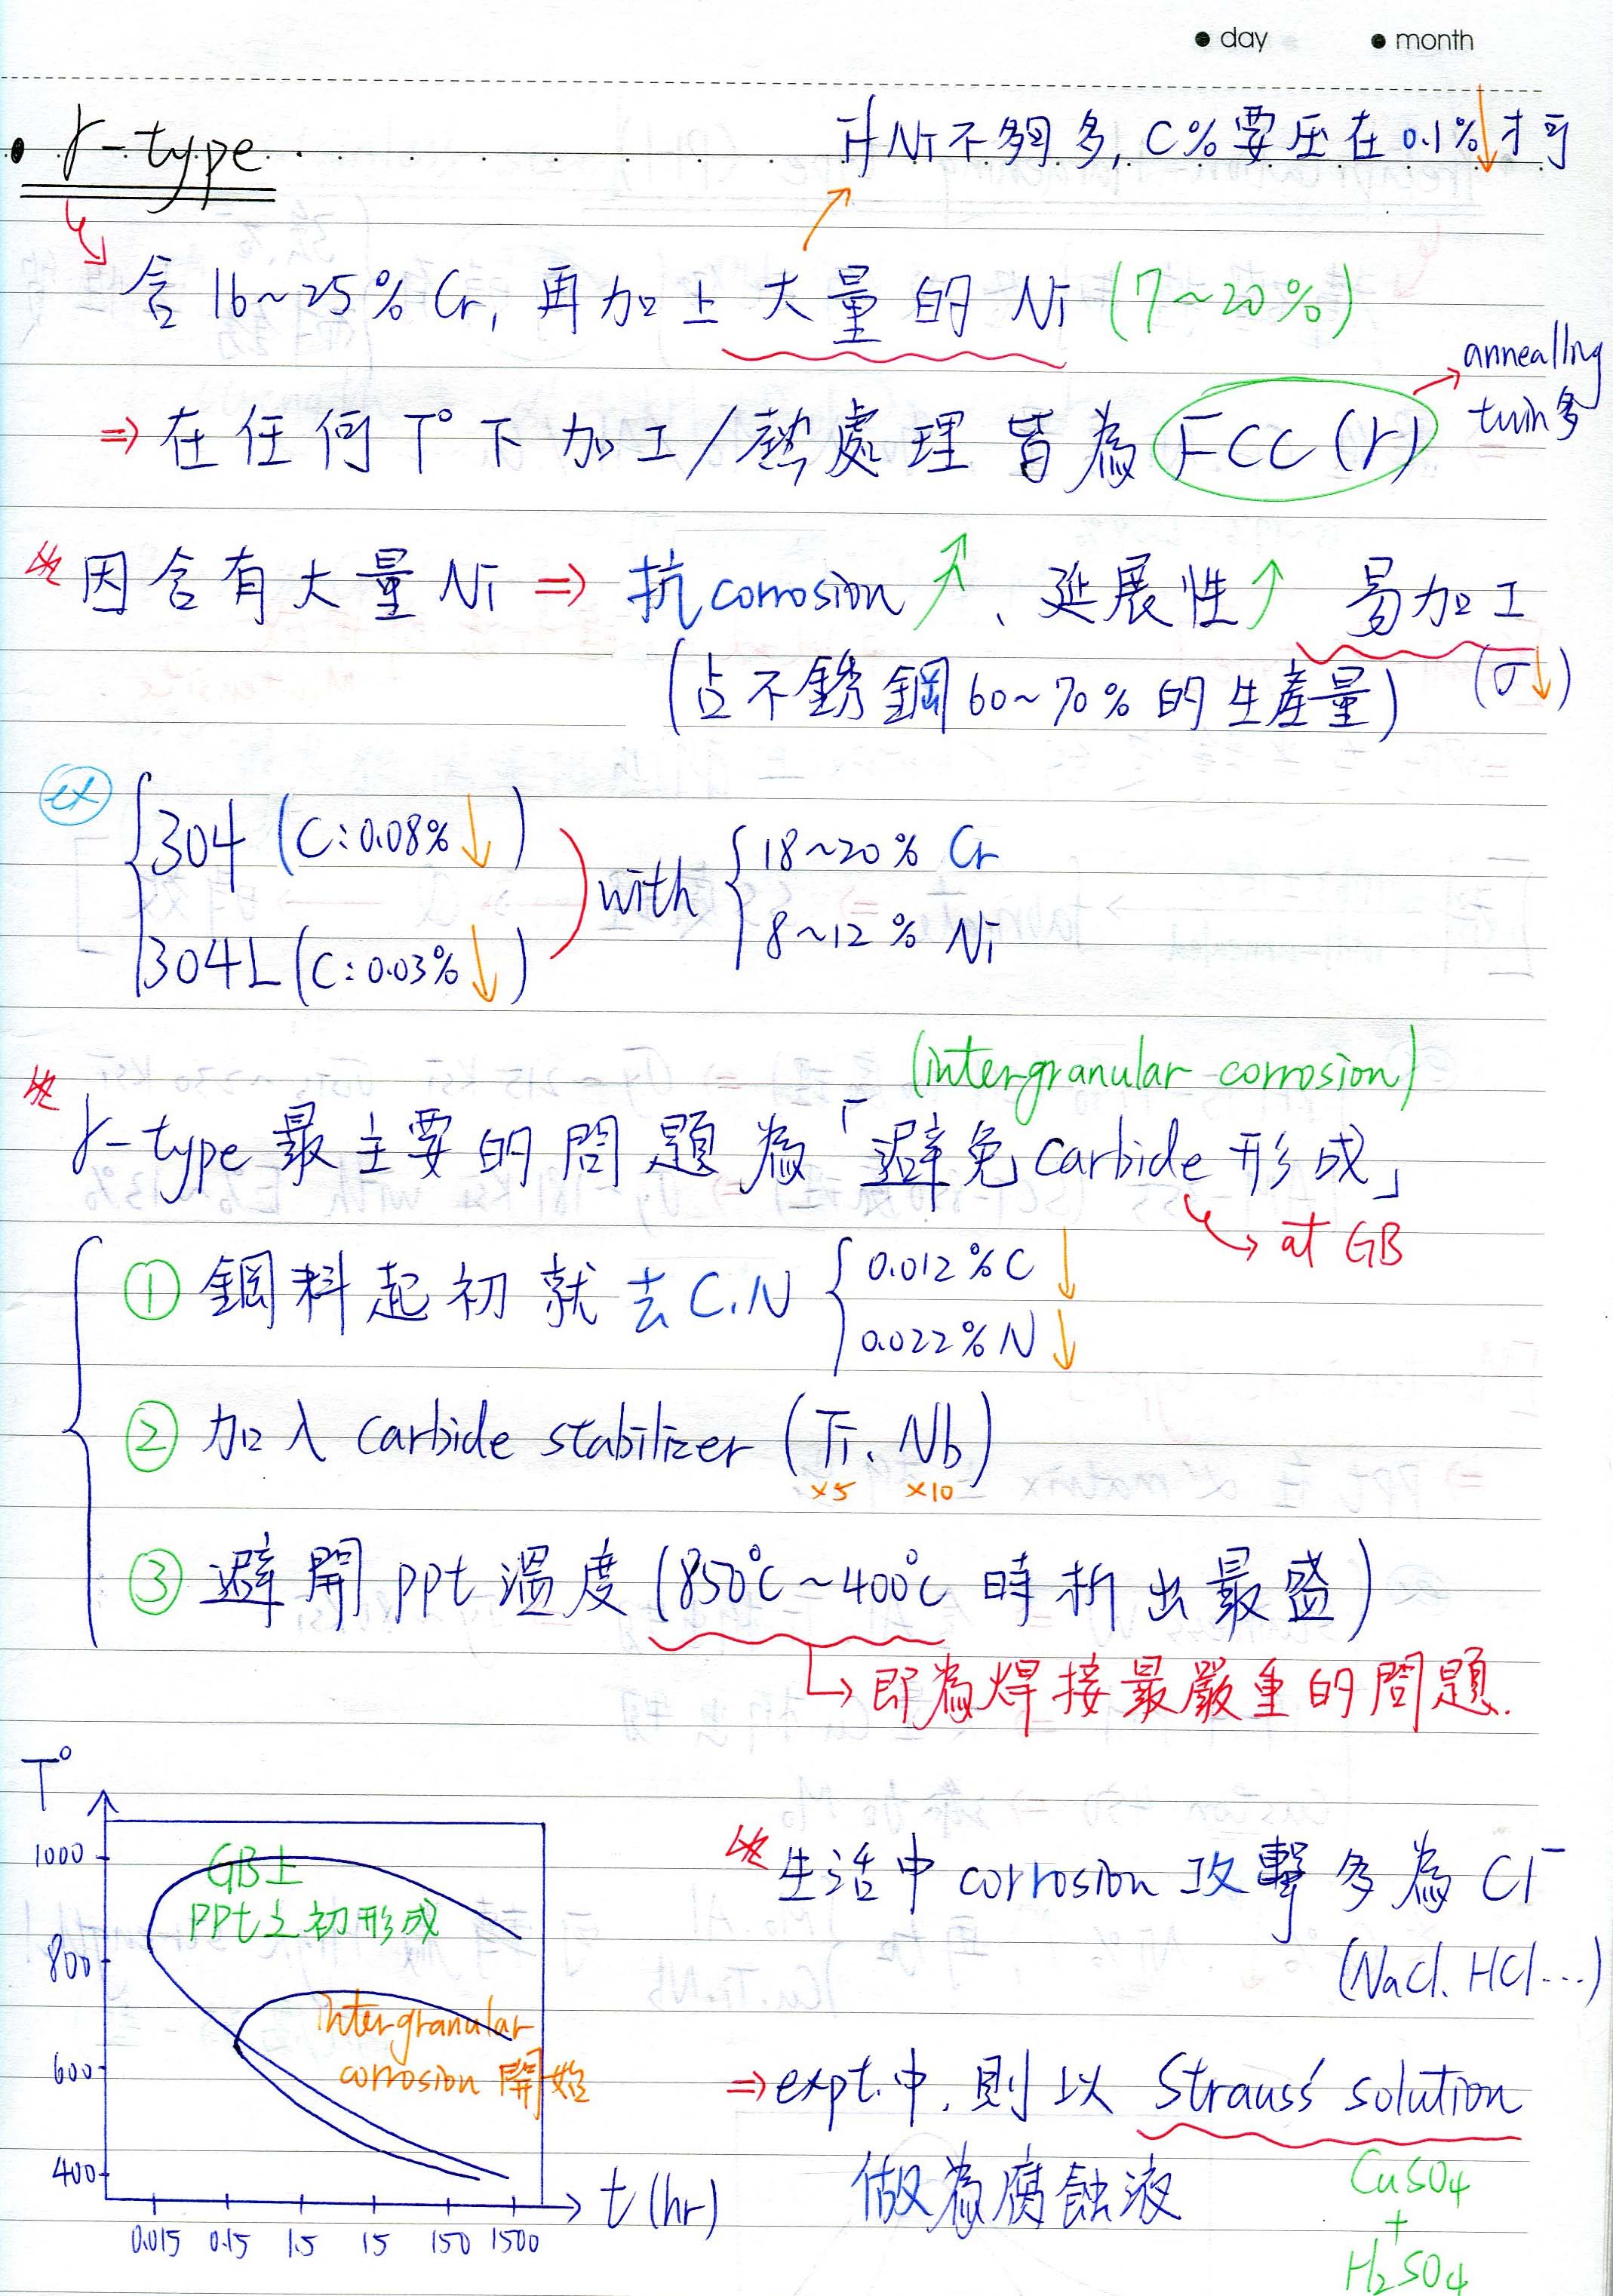 ● day ● month
• γ-type
若Ni不夠多, C%要压在0.1%↓才可
含16~25% Cr, 再加上大量的Ni (7~20%)
⇒ 在任何T°下加工/熱處理皆為FCC(γ) → annealing twin多
因含有大量Ni ⇒ 抗corrosion↑、延展性↑ 易加工
(占不銹鋼60~70%的生產量) (σ↓)
ex
304 (C:0.08%↓)
304L (C:0.03%↓)
with
18~20% Cr
8~12% Ni
(intergranular corrosion)
γ-type最主要的問題為「避免carbide形成」
→ at GB
① 鋼料起初就去C.N
0.012%C↓
0.022%N↓
② 加入carbide stabilizer (Ti、Nb)
×5 ×10
③ 避開ppt溫度 (850°C~400°C時析出最盛)
→ 即為焊接最嚴重的問題.
T°
1000
800
600
400
GB上
ppt之初形成
intergranular
corrosion開始
0.015 0.15 1.5 15 150 1500
t(hr)
生活中corrosion攻擊多為Cl⁻
(NaCl. HCl...)
⇒ expt.中, 則以Strauss' solution
做為腐蝕液
CuSO₄
+
H₂SO₄